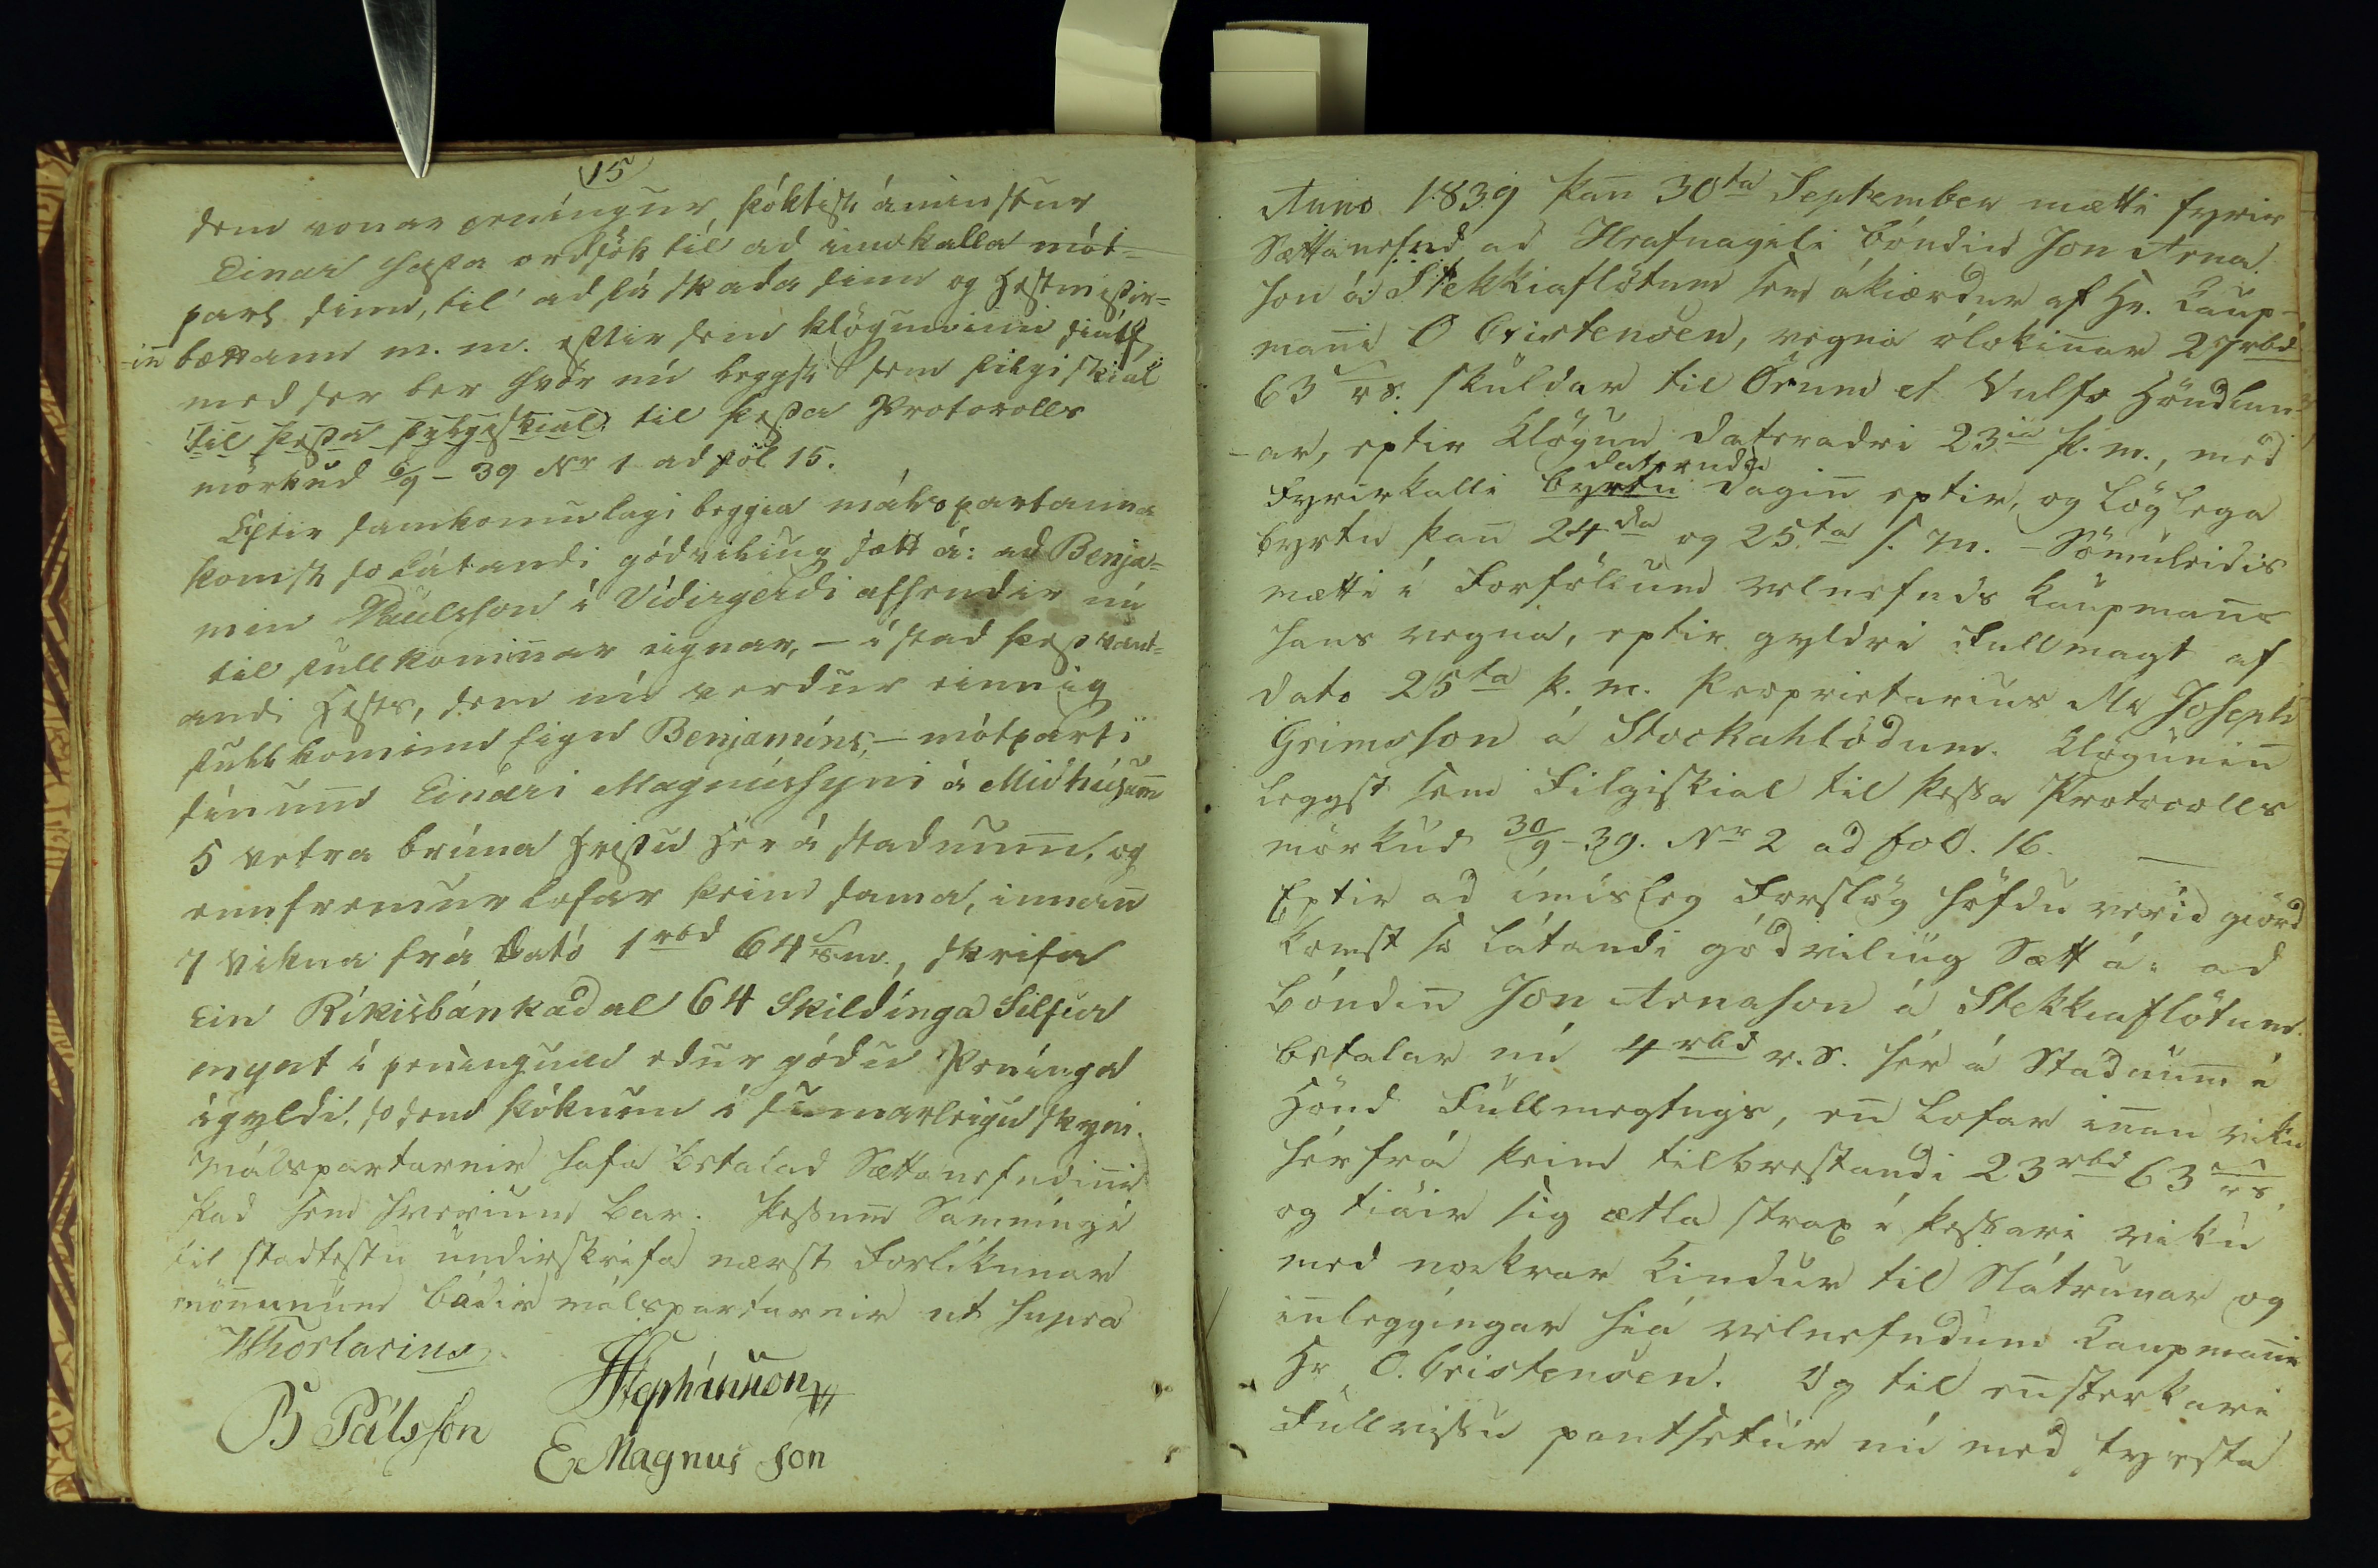 15
sem vonar peníngur, þóktist áminstur
Einar hafa orðsök til ad innkalla mót-
part sinn, til ad fá skada sinn og Hestmissir-
-in bættann m. m. eptir sem klögunninn sialf
med sér ber hvör nú leggst sem filgiskial
til þessa fylgiskial til þessa Protocolls
mörkud 6/9 - 39 Nr 1 ad fól 15.
Eptir samkomulagi beggia málspartanna
komst so látandi gódviliug sætt á: ad Benja-
min Paulsson í Vídirgerdi afhendir nú
til fullkominnar eignar, - í stad þess vant-
andi Hests, sem nú verdur einnig
fullkominn Eign Benjamíns, - mótparti
sínum Einari Magnússyni á Midhúsum
5 vetra brúna Hrissu hér á stadnum, og
ennfremur lofar þeim sama, innan
7 vikna frá Dató 1 rbd 64 s sm., skrifa
Ein Ríkisbánkadal 64 Skildínga Silfur
mynt í peníngum edur gódu Penínga
ígyldi, so sem þóknun í sumarleigu skyni.
Málspartarnir hafa betalad Sættanefndinni
þad sem hverium bar. Þessum Samníngi
til stadfestu undirskrifa nærst Forlikunar
mönnunum bádir málspartarnir ut supra
HThorlacius
HStephánsson
B Pálsson
E Magnus son
Anno 1839 þan 30ta September mætti fyrir
Sættanefnd ad Hrafnagili bóndin Jon Arna
son á Stekkiaflötum sem ákiærdur af Hr. Kaup-
manni O Christensen, vegna ólokinar 27 rbd
63 s rs. skuldar til Örum et Vulfs Höndlun-
-ar, eptir Klögun dateradri 23ia þ. m., med
daterudu
Fyrirkalli byrtu dagin eptir, og löglega
byrtu þan 24da og 25ta s. m. - Sömuleidis
mætti í Forföllum velnefnds Kaupmans
hans vegna, eptir gyldri Fullmagt af
dato 25ta þ. m. Proprietarius Mr Joseph
Grimsson á Stockahlödum. Klögunin
leggst sem Filgiskial til þessa Protocolls
mörkud 30/9 - 39. Nr 2 ad fol. 16.
Eptir ad ímisleg Forslög höfdu verid giörd
komst so látandi gódviliug Sætt á: ad
bóndin Jon Arnason á Stekkiaflötum
betalar nú 4 rbd r. S. hér á Stadnum í
Hönd Fullmegtugs, en lofar innan viku
hérfrá þeim tilbrestandi 23 rbd 63 s rs.
og tiáir sig ætla strax í þessari viku
med nockrar Kindur til Slátrunar og
inleggingar hiá velnefndum Kaupmanni
Hr O. Cristensen. Og til ensterkari
Fullvissu pantsetur nú med fyrsta